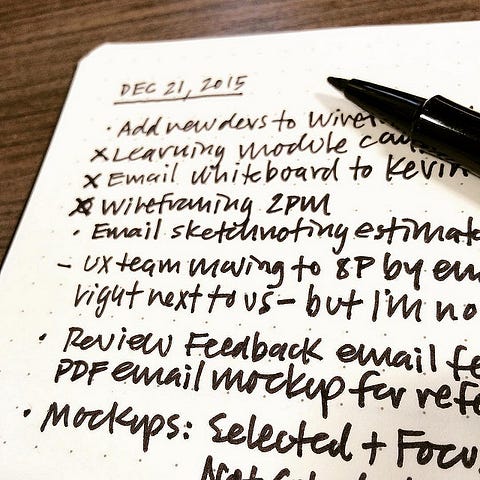 DEC 21, 2015
• Add new devs to
x Learning module
x Email whiteboard to Kevin
x Wireframing 2PM
• Email sketchnoting
– UX team moving to 8P by
right next to us – but I'm
• Review Feedback email
PDF email mockup for
• Mockups: Selected +